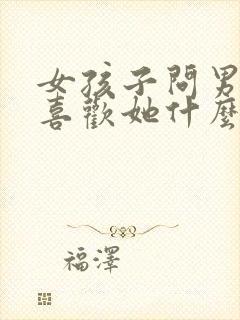 女孩子問男
喜歡她什麼
福澤